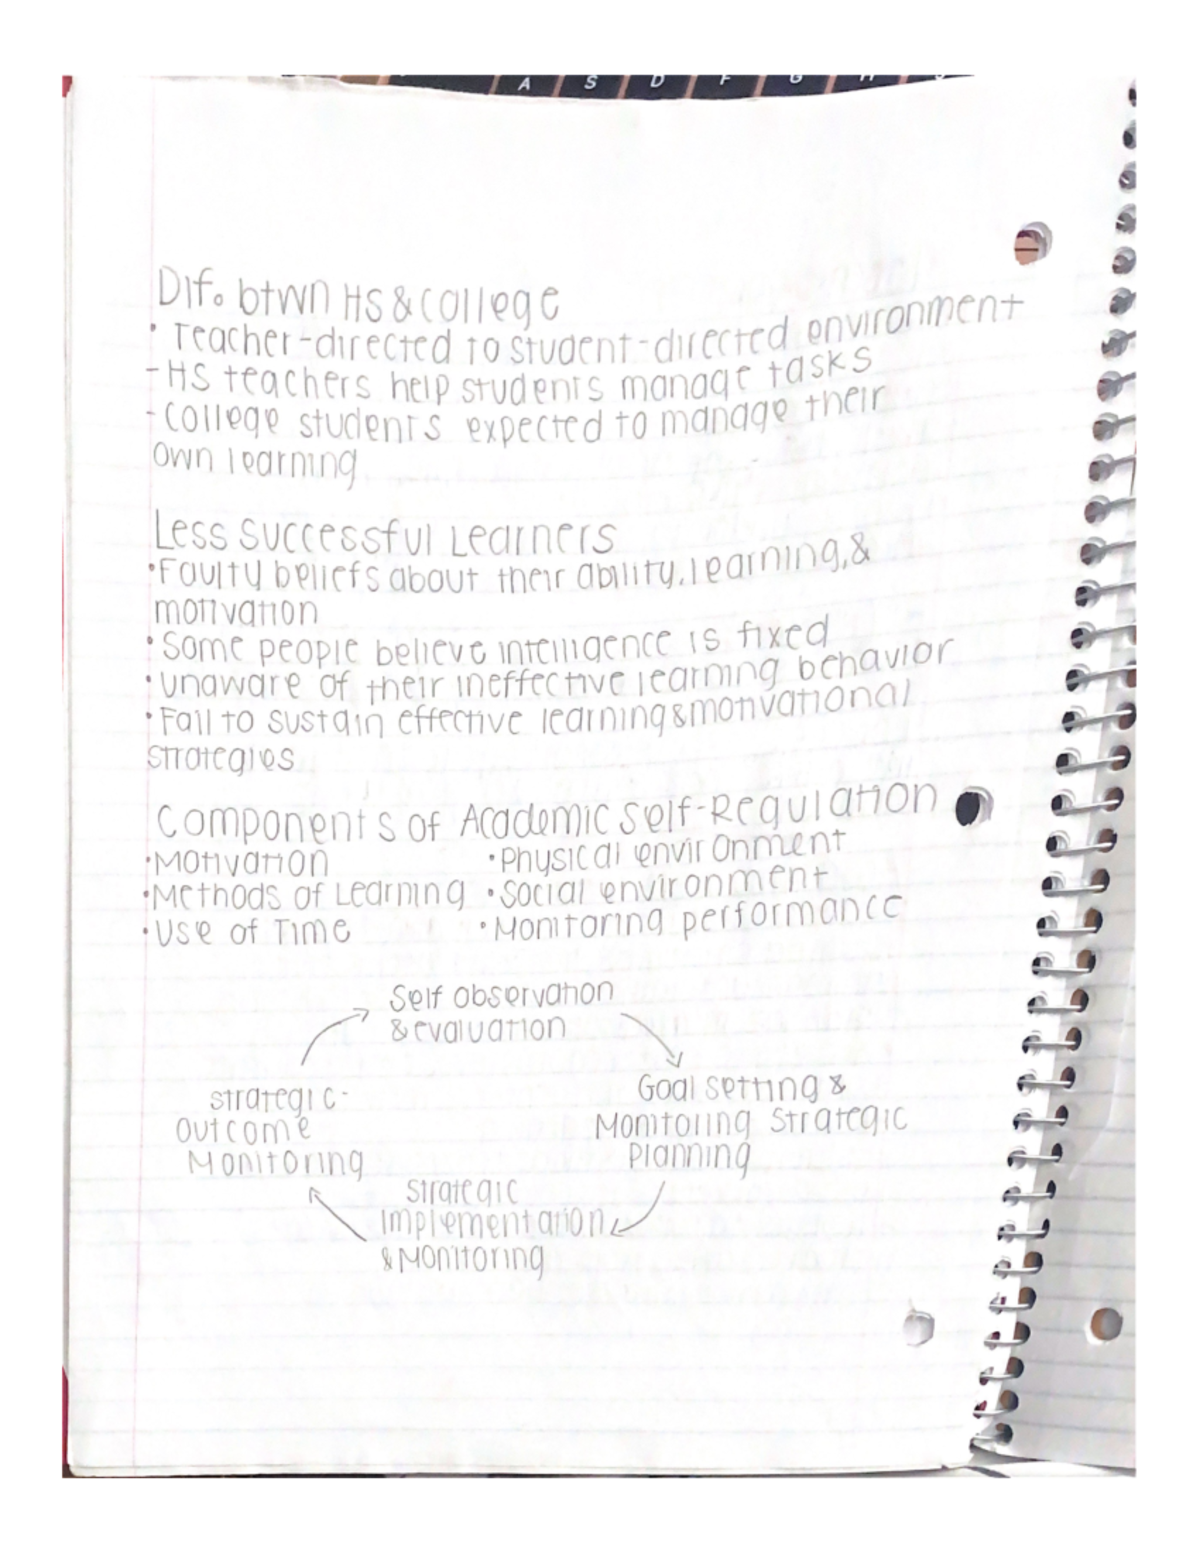 A S D F G H
Dif. btwn HS & College
• Teacher-directed to student-directed environment
- HS teachers help students manage tasks
- College students expected to manage their
own learning
Less Successful Learners
• Faulty beliefs about their ability, learning, &
motivation
• Some people believe intelligence is fixed
• Unaware of their ineffective learning behavior
• Fail to sustain effective learning & motivational
strategies
Components of Academic Self-Regulation
• Motivation • Physical environment
• Methods of Learning • Social environment
• Use of Time • Monitoring performance
Self observation
& evaluation
Goal setting &
Monitoring Strategic
Planning
Strategic
Implementation
& Monitoring
Strategic-
Outcome
Monitoring